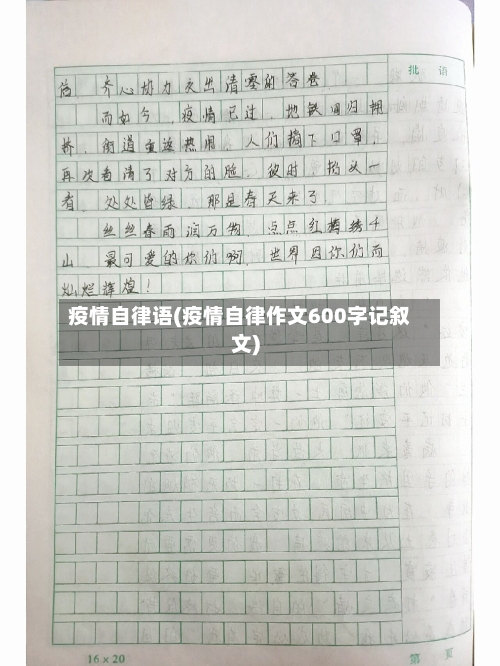 批 语
齐心协力交出清零的答卷
而如今，疫情已过，地铁回归拥
挤，街道重返热闹，人们摘下口罩，
再次看清了对方的脸，彼时，抬头一
看，处处皆绿，那是春天来了。
丝丝春雨润万物，点点红梅绣千
山，最可爱的你们啊，世界因你们而
灿烂辉煌！
疫情自律语(疫情自律作文600字记叙
文)
16×20
第 页